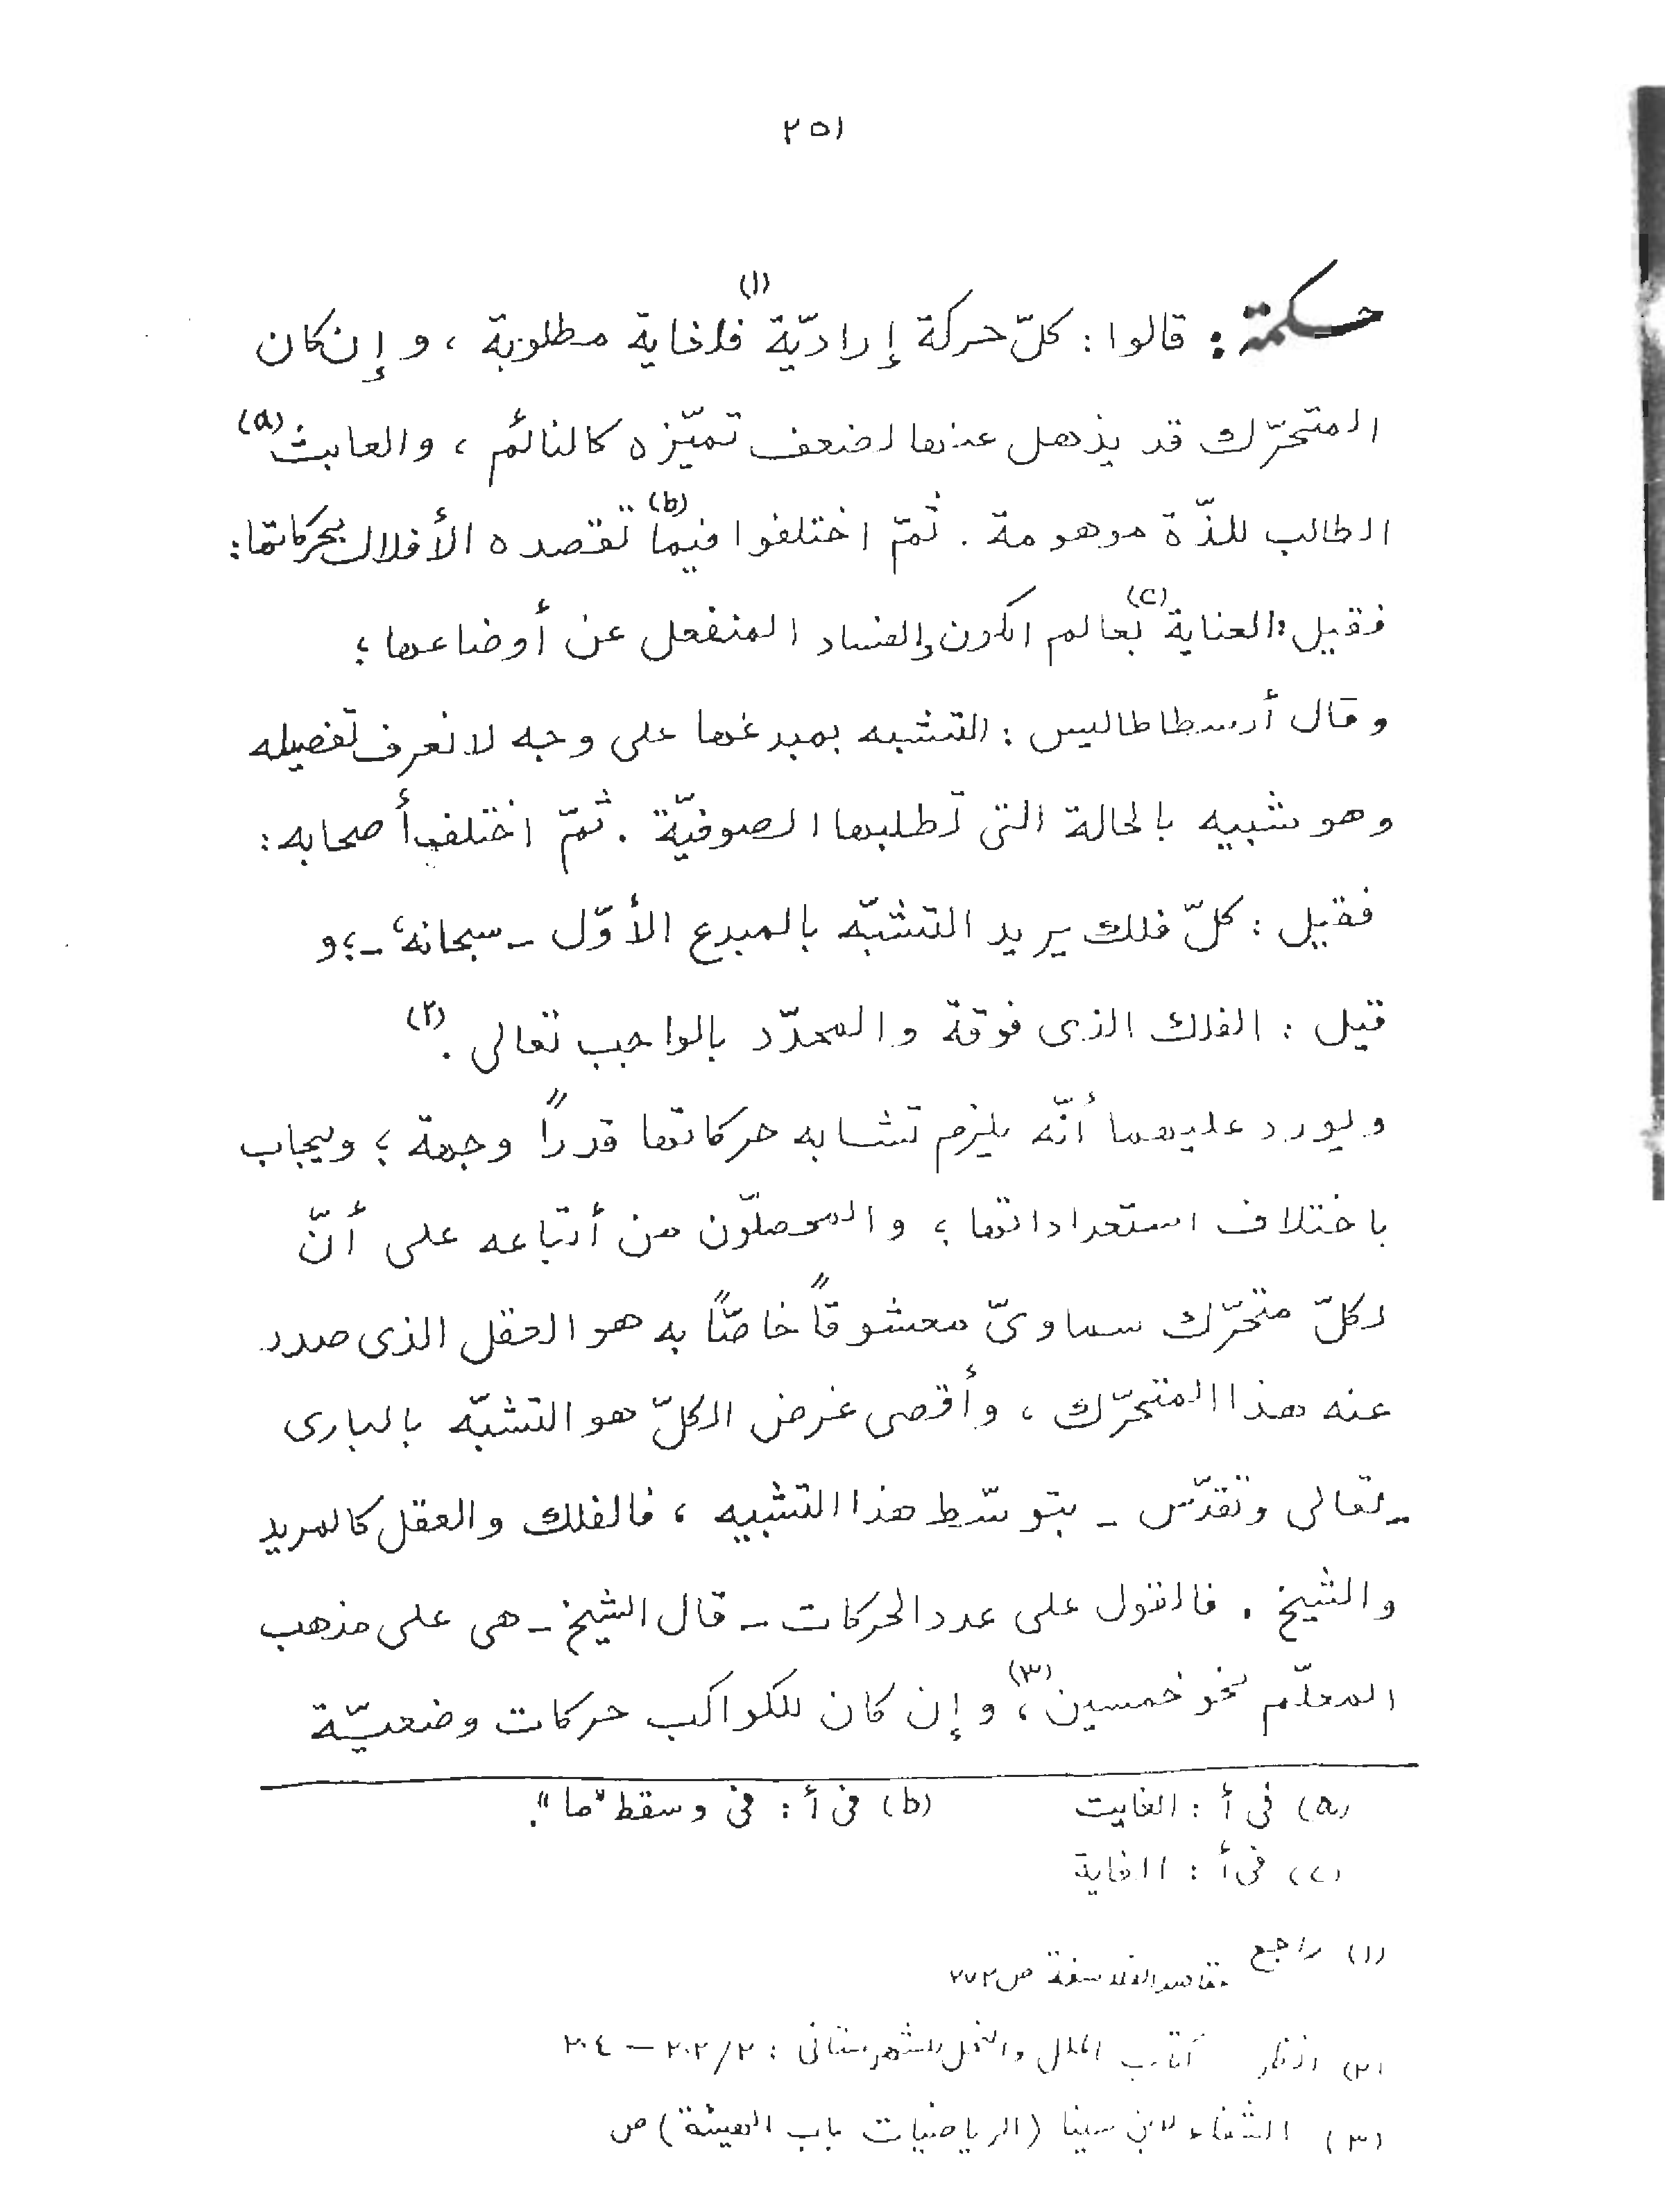 ٢٥١
حكمة: قالوا: كلّ حركة إراديّة(١) فلغاية مطلوبة، وإن كان
المتحرّك قد يذهل عنها لضعف تميّزه كالنائم، والعابث(a)
الطالب للذّة موهومة. ثمّ اختلفوا فيما(b) تقصده الأفلاك بحركاتها:
فقيل: العناية(c) بعالم الكون والفساد المنفعل عن أوضاعها؛
وقال أرسطاطاليس: التشبه بمبدعها على وجه لا نعرف تفصيله
وهو شبيه بالحالة التى تطلبها الصوفيّة. ثمّ اختلف أصحابه:
فقيل: كلّ فلك يريد التشبّه بالمبدع الأوّل ـ سبحانه ـ؛ و
قيل: الفلك الذى فوقة والمحدّد بالواجب تعالى.(٢)
ويورد عليهما أنّه يلزم تشابه حركاتها قدراً وجهة؛ ويجاب
باختلاف استعداداتها؛ والمحصلّون من أتباعه على أنّ
لكلّ متحرّك سماوىّ معشوقاً خاصّاً به هو العقل الذى صدر
عنه هذا المتحرّك، وأقصى غرض الكلّ هو التشبّه بالبارى
ـ تعالى وتقدّس ـ بتوسّط هذا التشبيه، فالفلك والعقل كالمريد
والشيخ. فالقول على عدد الحركات ـ قال الشيخ ـ هى على مذهب
المعلّم نحو خمسين(٣)، وإن كان للكواكب حركات وضعيّة
(a) فى أ: الغايت (b) فى أ: فى وسقط "ما".
(c) فى أ: الغاية
(١) راجع مقاصد الفلاسفة ص ٢٧٢
(٢) انظر كتاب الملل والنحل للشهرستانى: ٢/٢٠٢ – ٢٠٤
(٣) الشفاء لابن سينا (الرياضيات باب الهيئة) ص